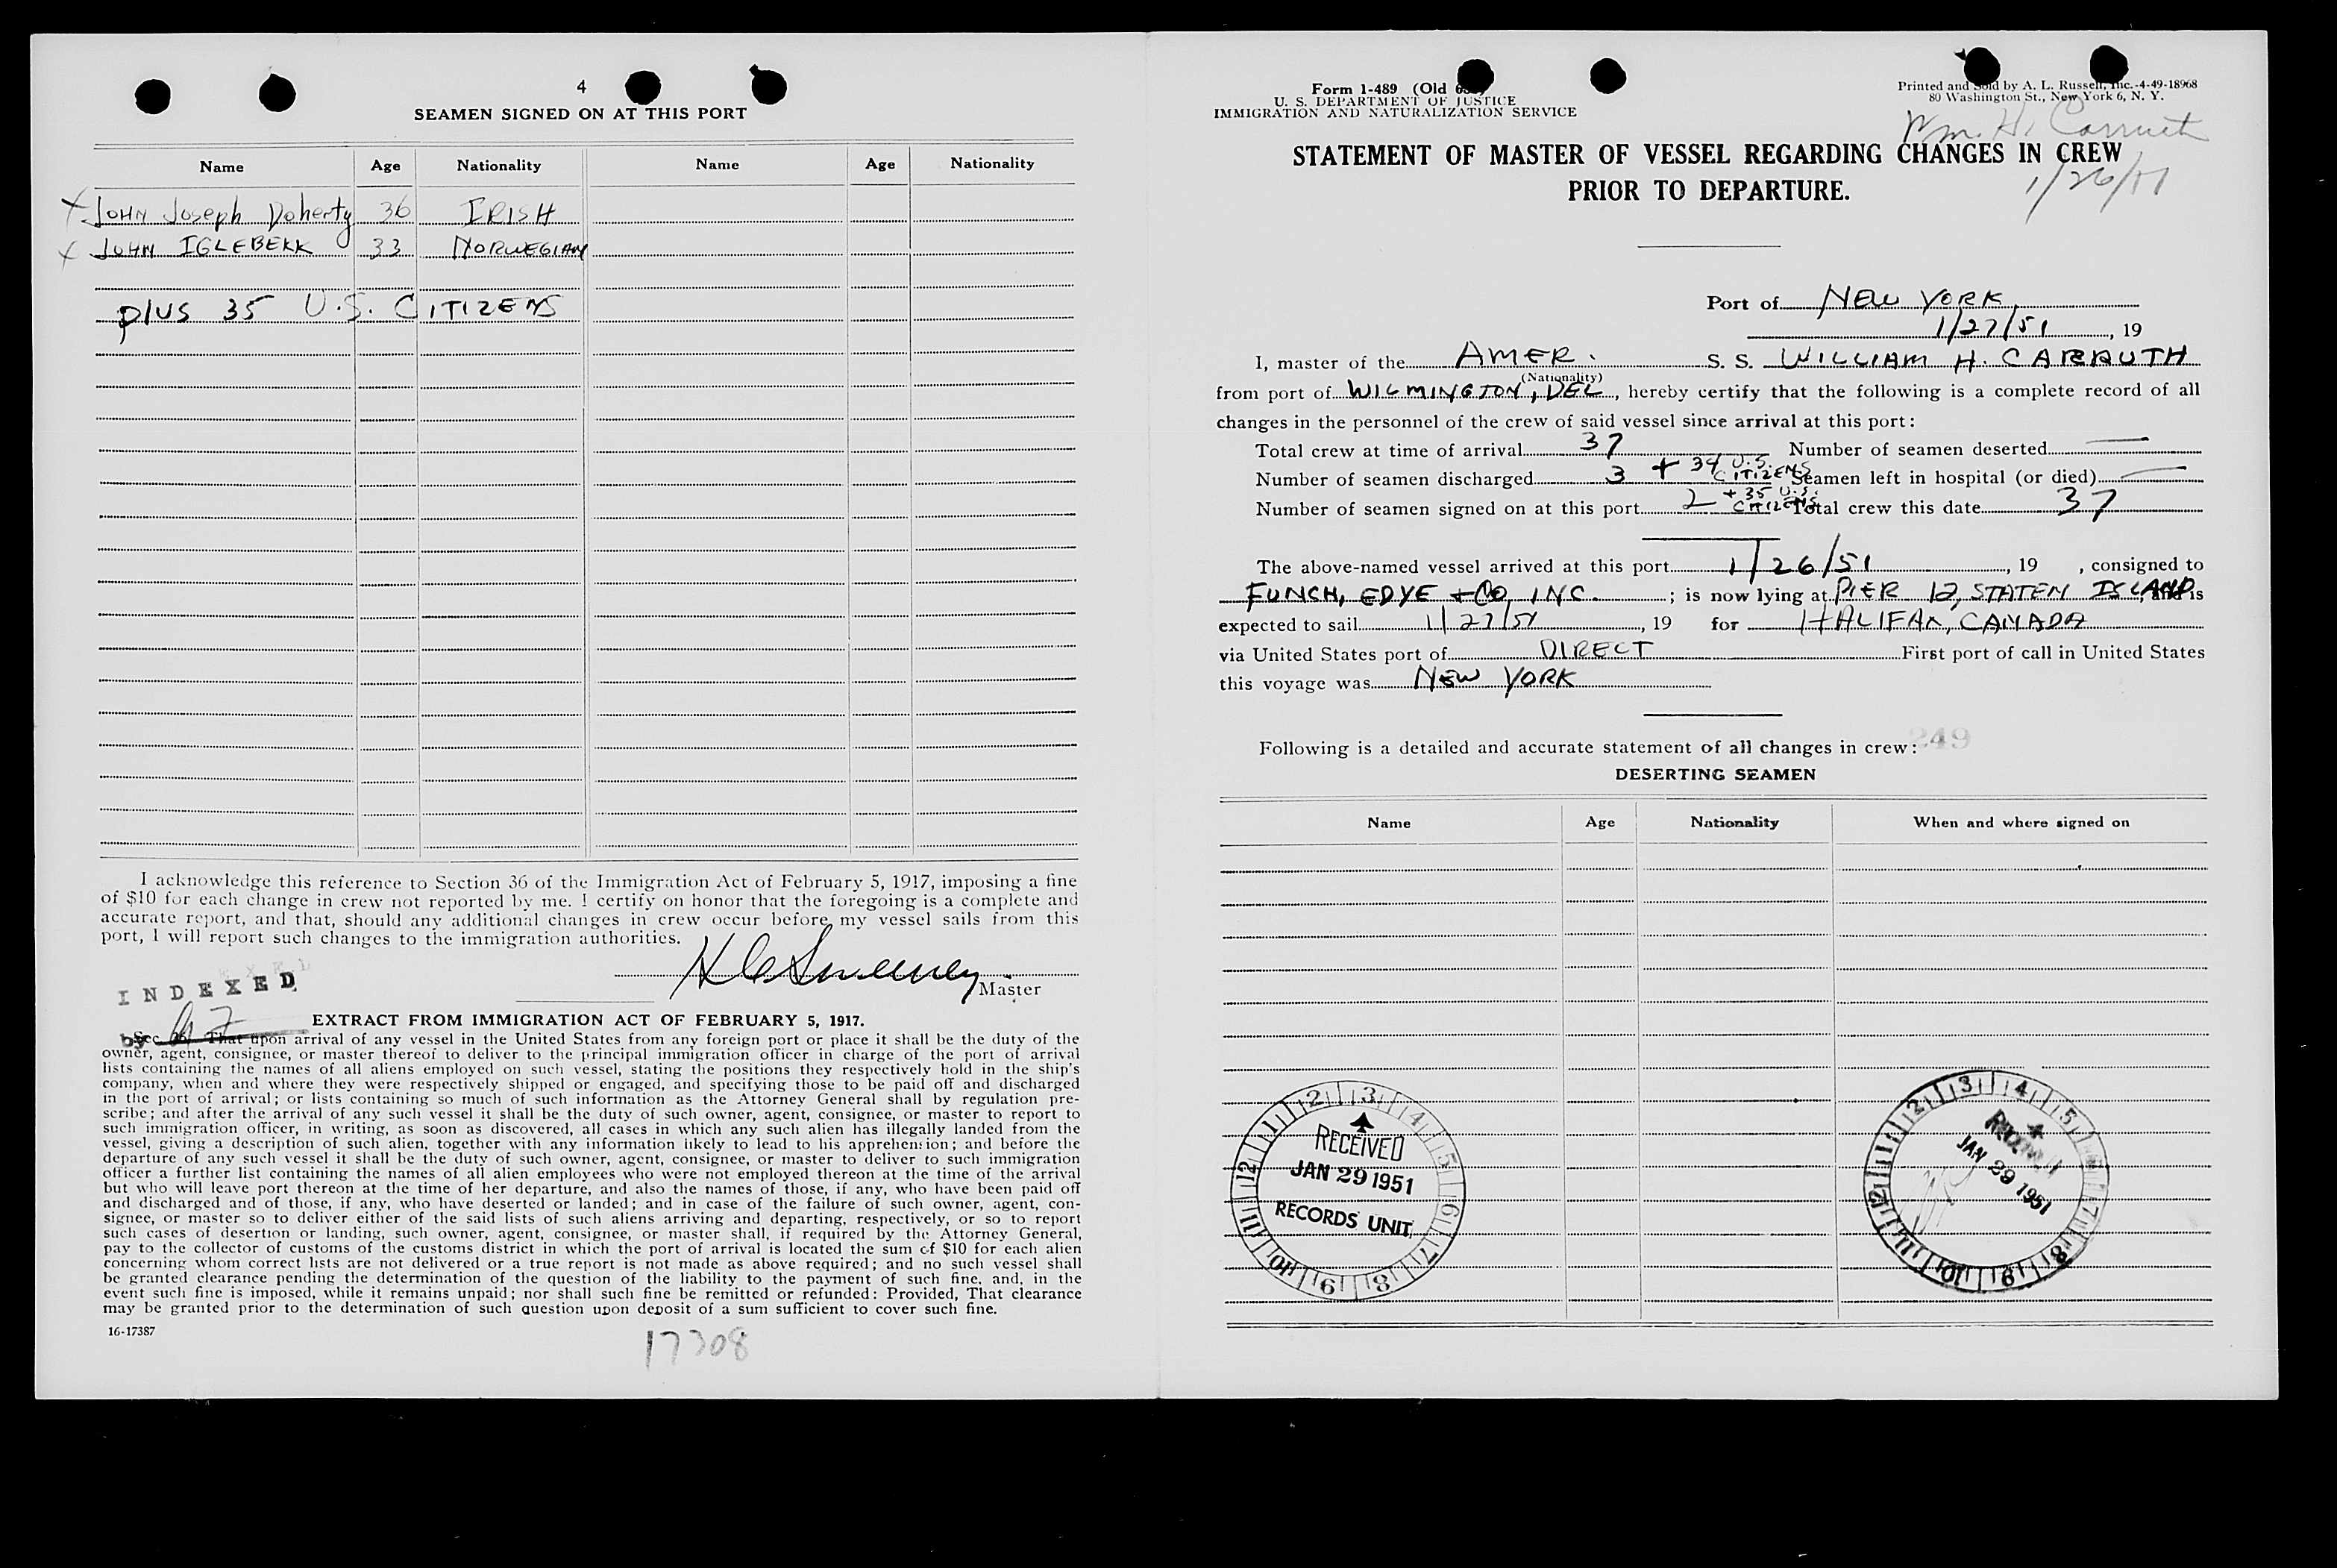 4
SEAMEN SIGNED ON AT THIS PORT
Name Age Nationality Name Age Nationality
x John Joseph Doherty 36 IRISH
x JOHN IGLEBEKK 33 NORWEGIAN
plus 35 U.S. CITIZENS
I acknowledge this reference to Section 36 of the Immigration Act of February 5, 1917, imposing a fine
of $10 for each change in crew not reported by me. I certify on honor that the foregoing is a complete and
accurate report, and that, should any additional changes in crew occur before my vessel sails from this
port, I will report such changes to the immigration authorities.
Sweeney
Master
INDEXED
by
EXTRACT FROM IMMIGRATION ACT OF FEBRUARY 5, 1917.
Sec. 36. That upon arrival of any vessel in the United States from any foreign port or place it shall be the duty of the
owner, agent, consignee, or master thereof to deliver to the principal immigration officer in charge of the port of arrival
lists containing the names of all aliens employed on such vessel, stating the positions they respectively hold in the ship's
company, when and where they were respectively shipped or engaged, and specifying those to be paid off and discharged
in the port of arrival; or lists containing so much of such information as the Attorney General shall by regulation pre-
scribe; and after the arrival of any such vessel it shall be the duty of such owner, agent, consignee, or master to report to
such immigration officer, in writing, as soon as discovered, all cases in which any such alien has illegally landed from the
vessel, giving a description of such alien, together with any information likely to lead to his apprehension; and before the
departure of any such vessel it shall be the duty of such owner, agent, consignee, or master to deliver to such immigration
officer a further list containing the names of all alien employees who were not employed thereon at the time of the arrival
but who will leave port thereon at the time of her departure, and also the names of those, if any, who have been paid off
and discharged and of those, if any, who have deserted or landed; and in case of the failure of such owner, agent, con-
signee, or master so to deliver either of the said lists of such aliens arriving and departing, respectively, or so to report
such cases of desertion or landing, such owner, agent, consignee, or master shall, if required by the Attorney General,
pay to the collector of customs of the customs district in which the port of arrival is located the sum of $10 for each alien
concerning whom correct lists are not delivered or a true report is not made as above required; and no such vessel shall
be granted clearance pending the determination of the question of the liability to the payment of such fine, and, in the
event such fine is imposed, while it remains unpaid; nor shall such fine be remitted or refunded: Provided, That clearance
may be granted prior to the determination of such question upon deposit of a sum sufficient to cover such fine.
16-17387
17308
Form 1-489 (Old
U. S. DEPARTMENT OF JUSTICE
IMMIGRATION AND NATURALIZATION SERVICE
Printed and Sold by A. L. Russell, Inc.-4-49-18968
80 Washington St., New York 6, N. Y.
Wm. H. Carruth
STATEMENT OF MASTER OF VESSEL REGARDING CHANGES IN CREW
PRIOR TO DEPARTURE.
1/26/51
Port of NEW YORK
1/27/51, 19
I, master of the AMER. S. S. WILLIAM H. CARRUTH
(Nationality)
from port of WILMINGTON, DEL, hereby certify that the following is a complete record of all
changes in the personnel of the crew of said vessel since arrival at this port:
Total crew at time of arrival 37 Number of seamen deserted —
Number of seamen discharged 3 + 34 U.S. CITIZENS Seamen left in hospital (or died) —
Number of seamen signed on at this port 2 + 35 U.S. CITIZENS Total crew this date 37
The above-named vessel arrived at this port 1/26/51, 19 , consigned to
FUNCH, EDYE + Co INC. ; is now lying at PIER 12, STATEN ISLAND, and is
expected to sail 1/27/51, 19 for HALIFAX, CANADA
via United States port of DIRECT First port of call in United States
this voyage was NEW YORK
Following is a detailed and accurate statement of all changes in crew: 249
DESERTING SEAMEN
Name Age Nationality When and where signed on
12 1 2 3 4 5 6 7 8 9 10 11
RECEIVED
JAN 29 1951
RECORDS UNIT
12 11 1 2 3 4 5 6 7 8 9 10 11
RECEIVED
JAN 29 1951